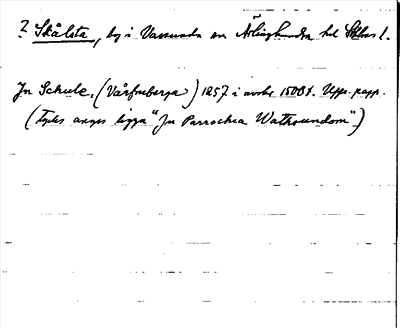 ? Skålsta, by i Vassunda sn Ärlinghundra hd Sthms l.
In Schule, (Vårfruberga) 1257 i avskr 1500 t. Upps. papp.
(Tycks anges ligga "In Parrochia Wathsundom")